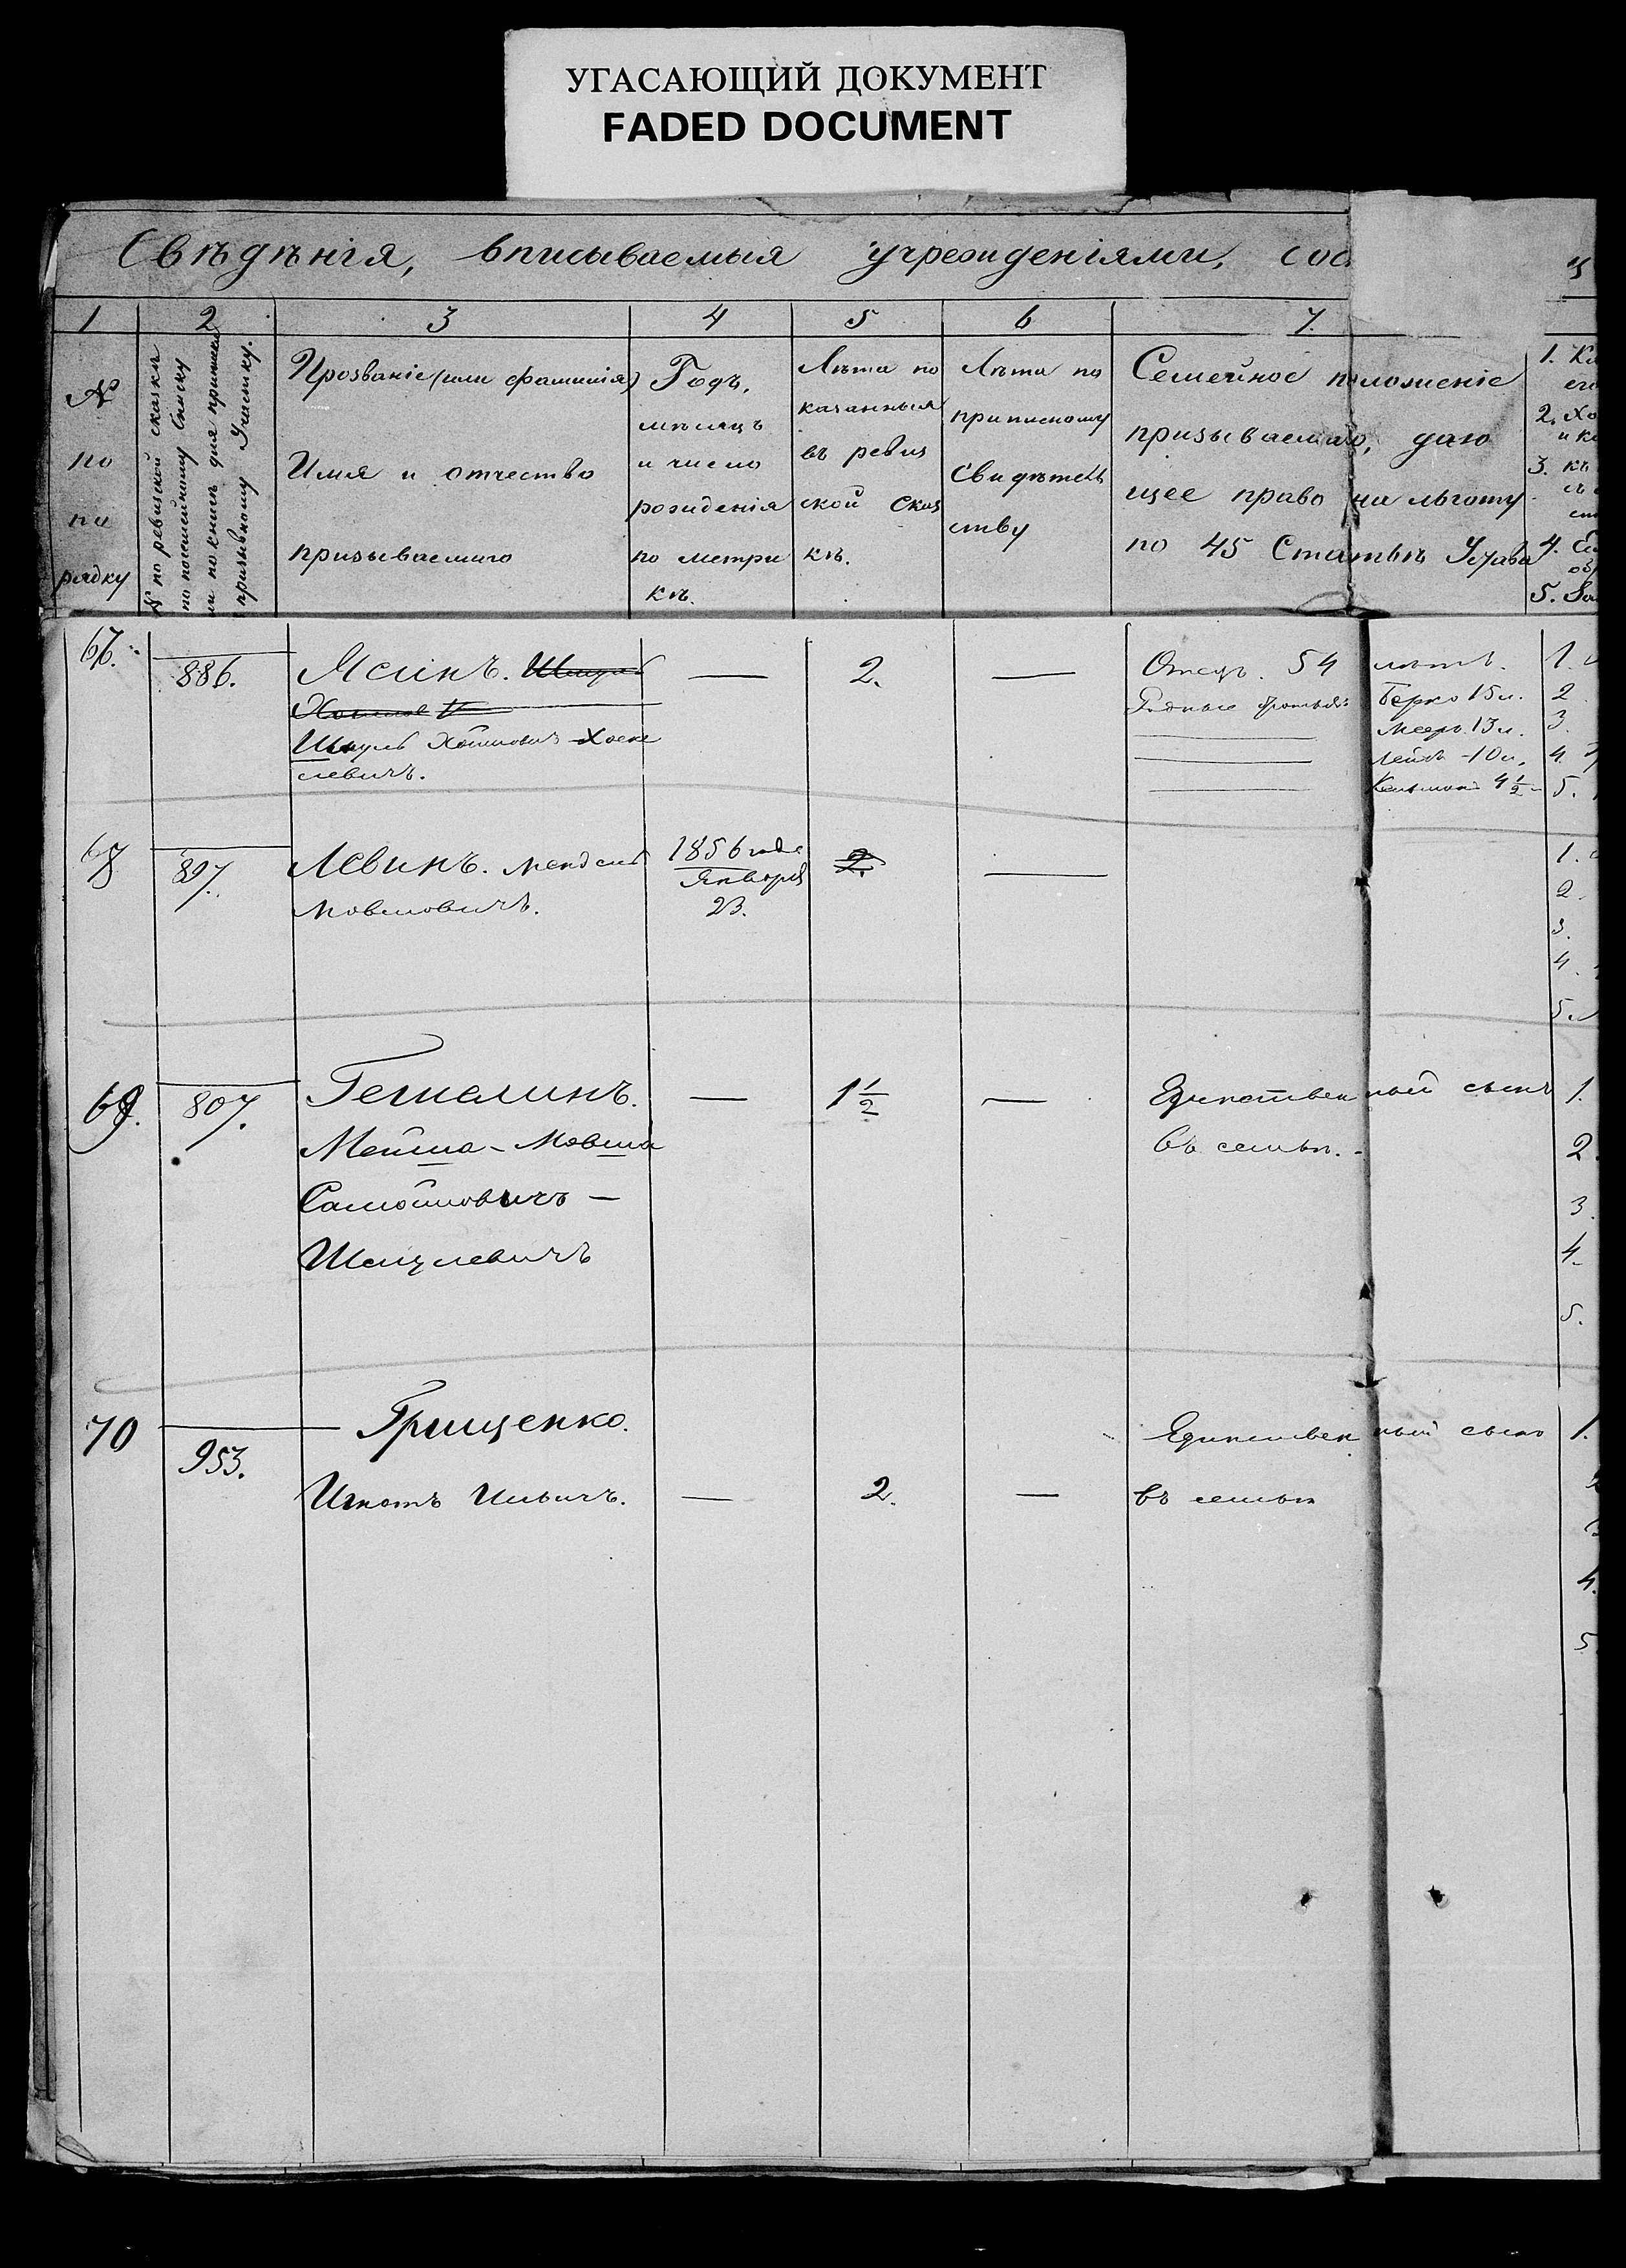 УГАСАЮЩИЙ ДОКУМЕНТ
FADED DOCUMENT
Свѣдѣнія, вписываемыя учрежденіями, сос
1 2 3 4 5 6 7.
№
по
по
рядку
№ по ревизской сказкѣ
по посемейному списку
или по книгѣ для приписки
къ призывному Участку.
Прозваніе (или фамилія)
Имя и отчество
призываемаго
Годъ,
мѣсяцъ
и число
рожденія
по метри
кѣ.
Лѣта по
казанныя
въ ревиз
ской сказ
кѣ.
Лѣта по
приписному
свидѣтель
ству
Семейное положеніе
призываемаго, даю
щее право на льготу
по 45 Статьѣ Устава
1.
2.
3.
4.
5.
67.
886.
Ясинъ. Шмуль
Шмуль Хаимовичъ-Хаске
левичъ.
—
2.
—
Отецъ. 54 лѣтъ.
Родные братья: Берко 15 л.
Мееръ 13 л.
Лейба - 10 л.
Кальманъ 4 1/2
1.
2
3.
4.
5.
68
897.
Левинъ. Мендель
Мовшовичъ.
1856 года
Января
23.
2.
—
1.
2.
3.
4.
5.
69.
807.
Мейша - Мовша
Самойловичъ -
Шмулевичъ
—
1 1/2
—
Единственный сынъ
въ семьѣ.
1.
2
3.
4.
5.
70
953.
Грищенко.
Игнатъ Ильичъ.
—
2.
—
Единственный сынъ
въ семьѣ
1.
4.
5